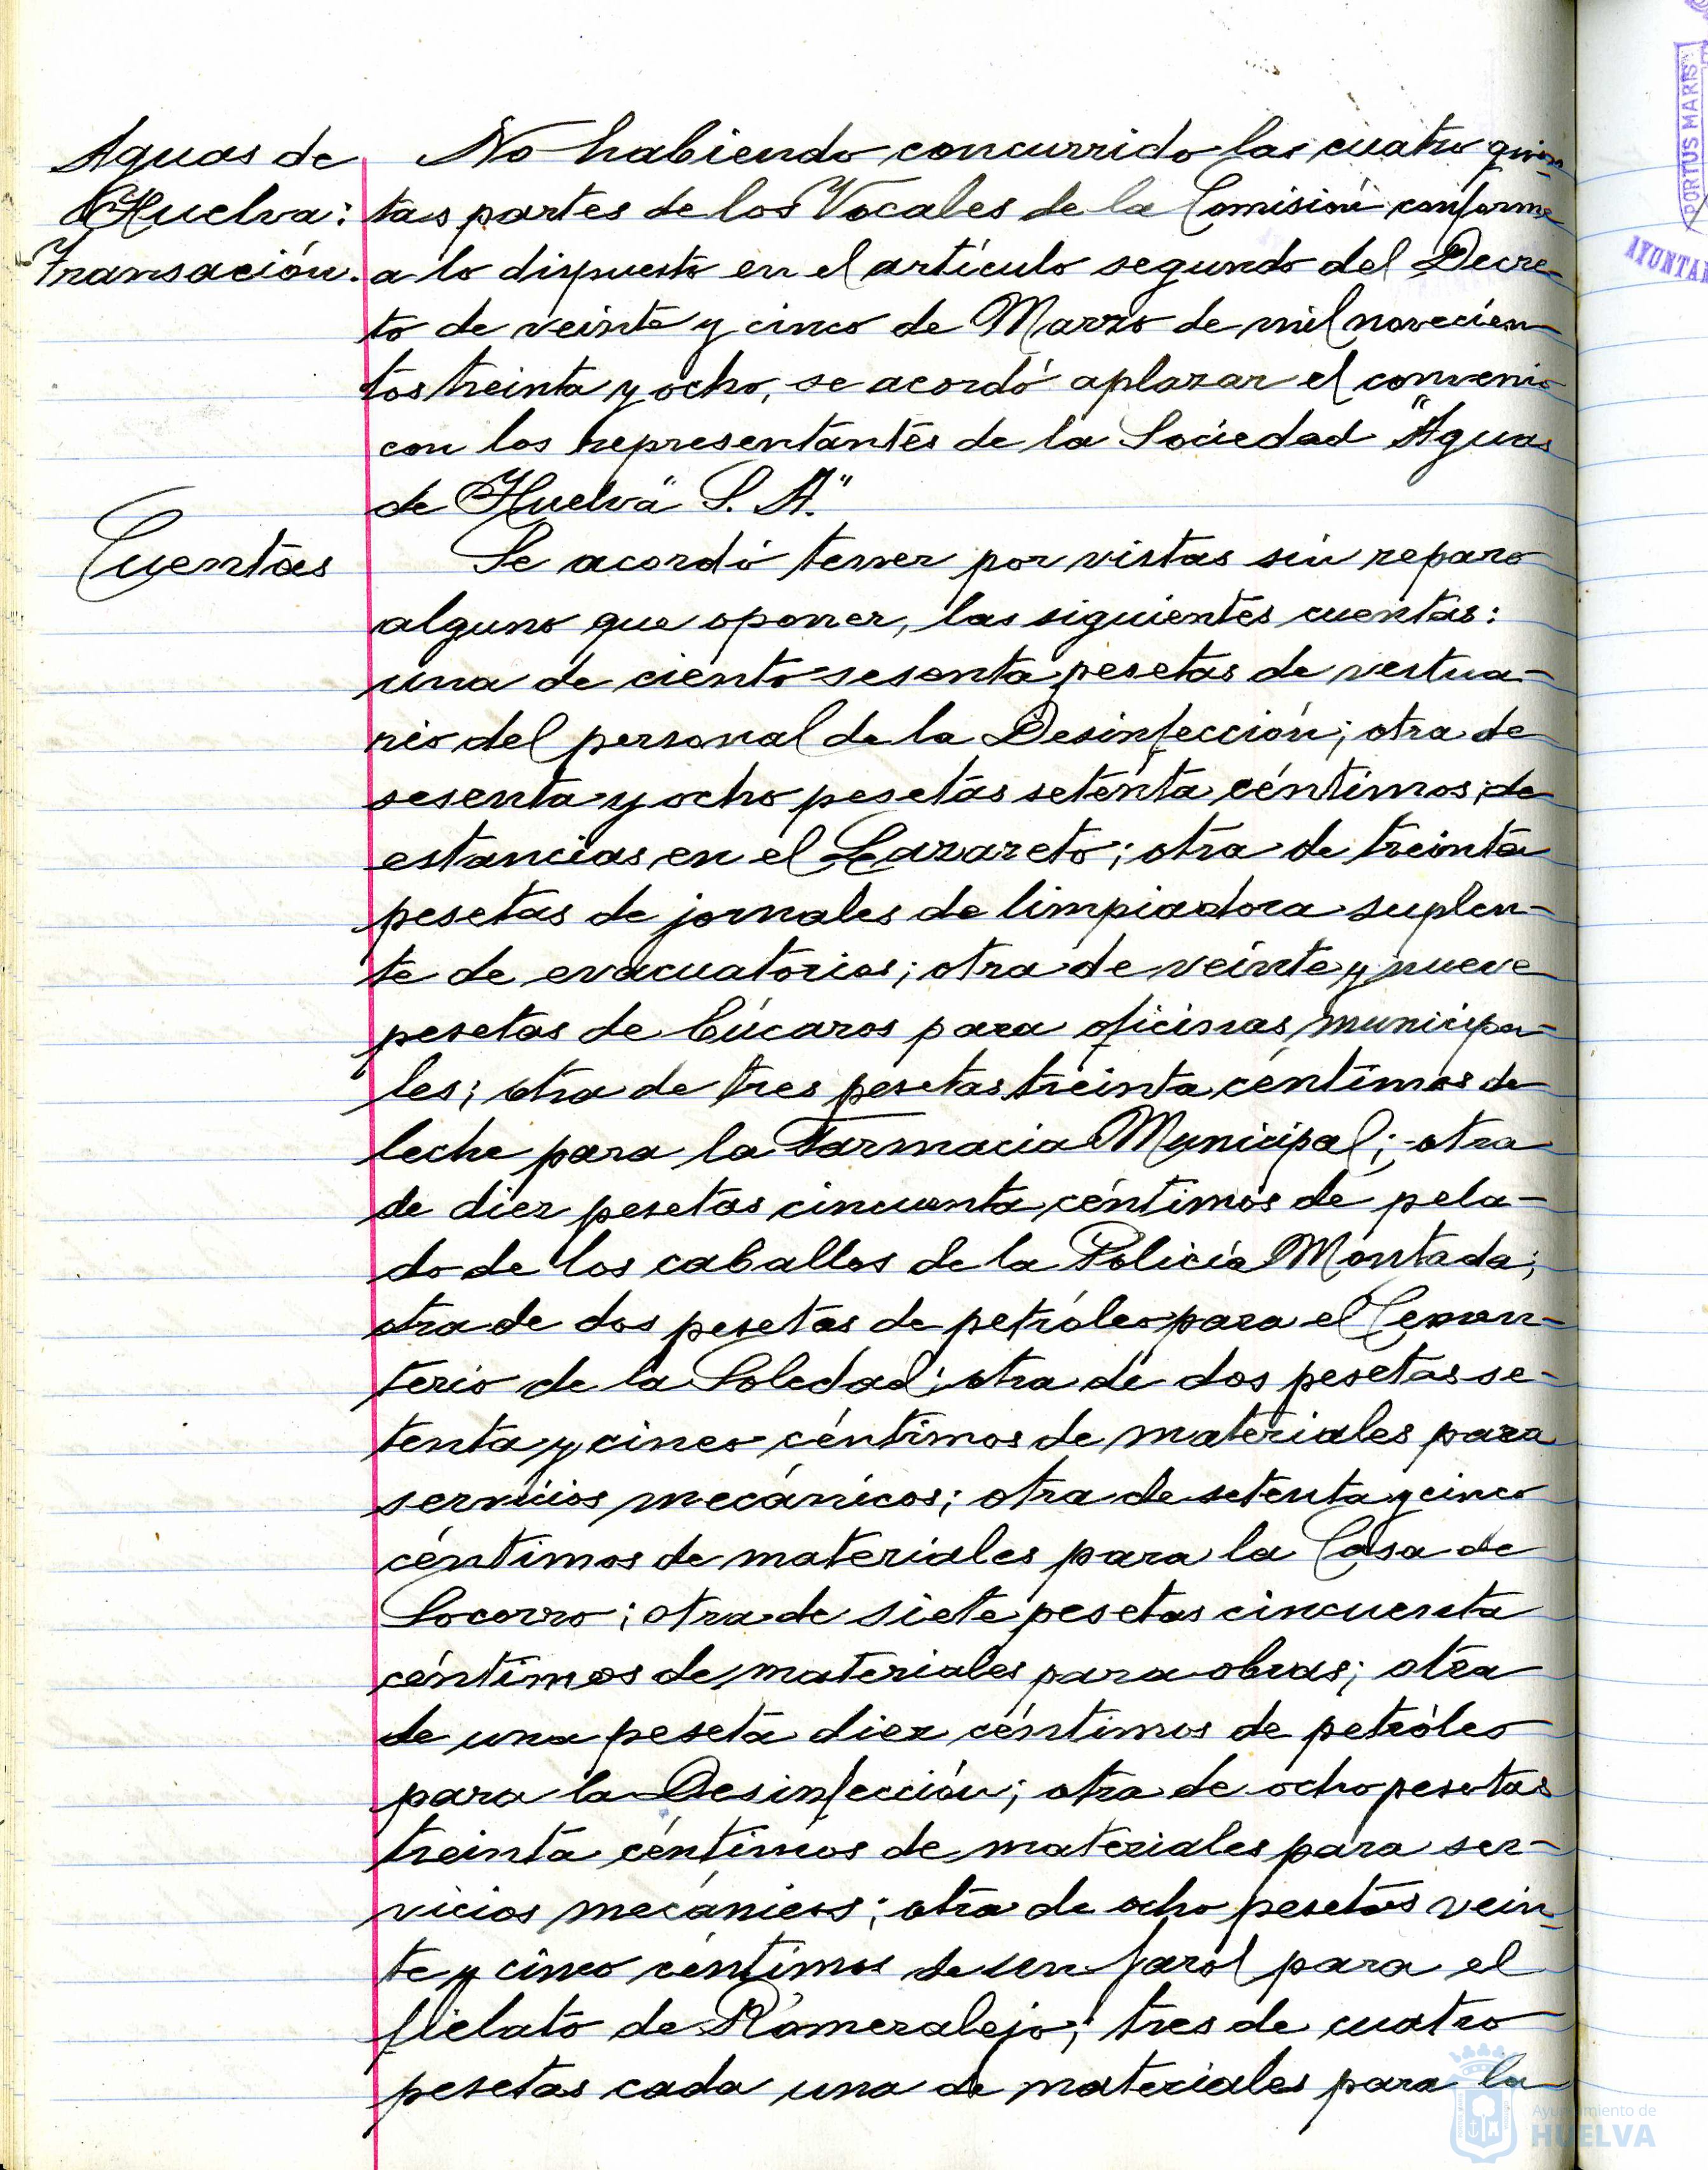 Aguas de
Huelva:
Transación.
No habiendo concurrido las cuatro quin-
tas partes de los Vocales de la Comisión conforme
a lo dispuesto en el artículo segundo del Decre-
to de veinte y cinco de Marzo de mil novecien-
tos treinta y ocho, se acordó aplazar el convenio
con los representantes de la Sociedad "Aguas
de Huelva" S. A."
Cuentas
Se acordó tener por vistas sin reparo
alguno que oponer, las siguientes cuentas:
una de ciento sesenta pesetas de vestua-
rio del personal de la Desinfección; otra de
sesenta y ocho pesetas setenta céntimos, de
estancias en el Lazareto; otra de treinta
pesetas de jornales de limpiadora suplen-
te de evacuatorios; otra de veinte y nueve
pesetas de búcaros para oficinas municipa-
les; otra de tres pesetas treinta céntimos de
leche para la Farmacia Municipal; otra
de diez pesetas cincuenta céntimos de pela-
do de los caballos de la Policía Montada;
otra de dos pesetas de petróleo para el Cemen-
terio de la Soledad; otra de dos pesetas se-
tenta y cinco céntimos de materiales para
servicios mecánicos; otra de setenta y cinco
céntimos de materiales para la Casa de
Socorro; otra de siete pesetas cincuenta
céntimos de materiales para obras; otra
de una peseta diez céntimos de petróleo
para la Desinfección; otra de ocho pesetas
treinta céntimos de materiales para ser-
vicios mecánicos; otra de ocho pesetas vein-
te y cinco céntimos de un farol para el
fielato de Romeralejo; tres de cuatro
pesetas cada una de materiales para la
PORTUS MARIS
Ayuntamiento de
HUELVA